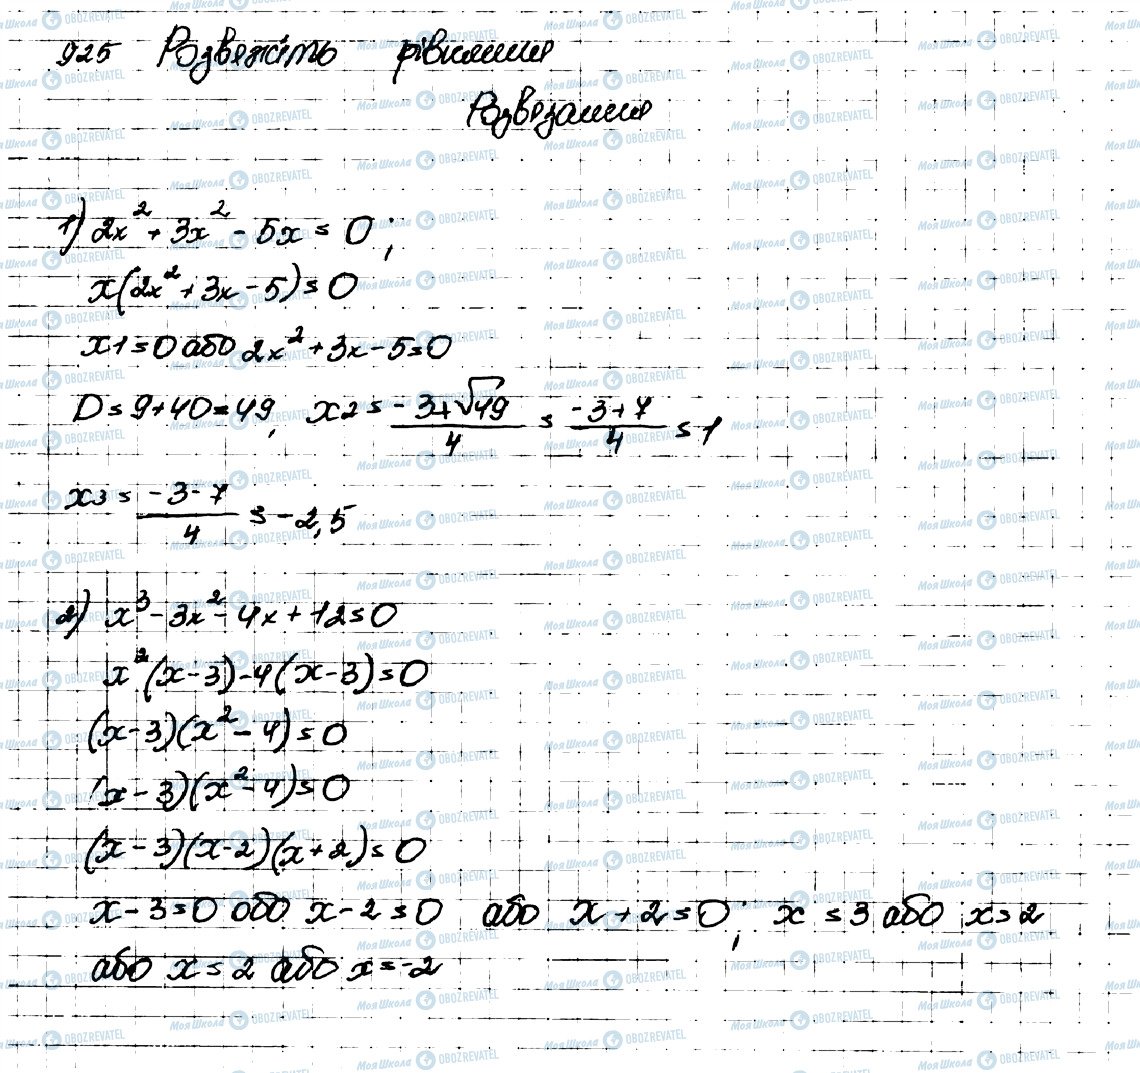 925 Розвяжіть рівняння
Розвязання
1) 2x² + 3x² - 5x = 0;
x(2x² + 3x - 5) = 0
x1 = 0 або 2x² + 3x - 5 = 0
D = 9 + 40 = 49, x2 = (-3+√49)/4 = (-3+7)/4 = 1
x3 = (-3-7)/4 = -2,5
2) x³ - 3x² - 4x + 12 = 0
x²(x-3) - 4(x-3) = 0
(x-3)(x² - 4) = 0
(x-3)(x² - 4) = 0
(x-3)(x-2)(x+2) = 0
x - 3 = 0 або x - 2 = 0 або x + 2 = 0; x = 3 або x = 2
або x = 2 або x = -2